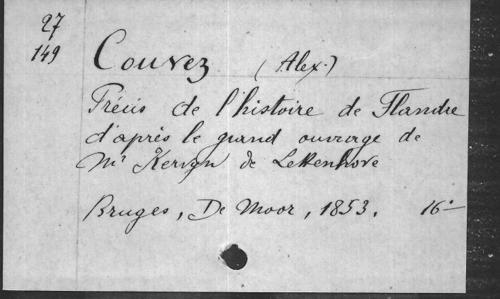 27
149
Couvez (Alex.)
Précis de l'histoire de Flandre
d'après le grand ouvrage de
Mr Kervyn de Lettenhove
Bruges, De Moor, 1853. 16°